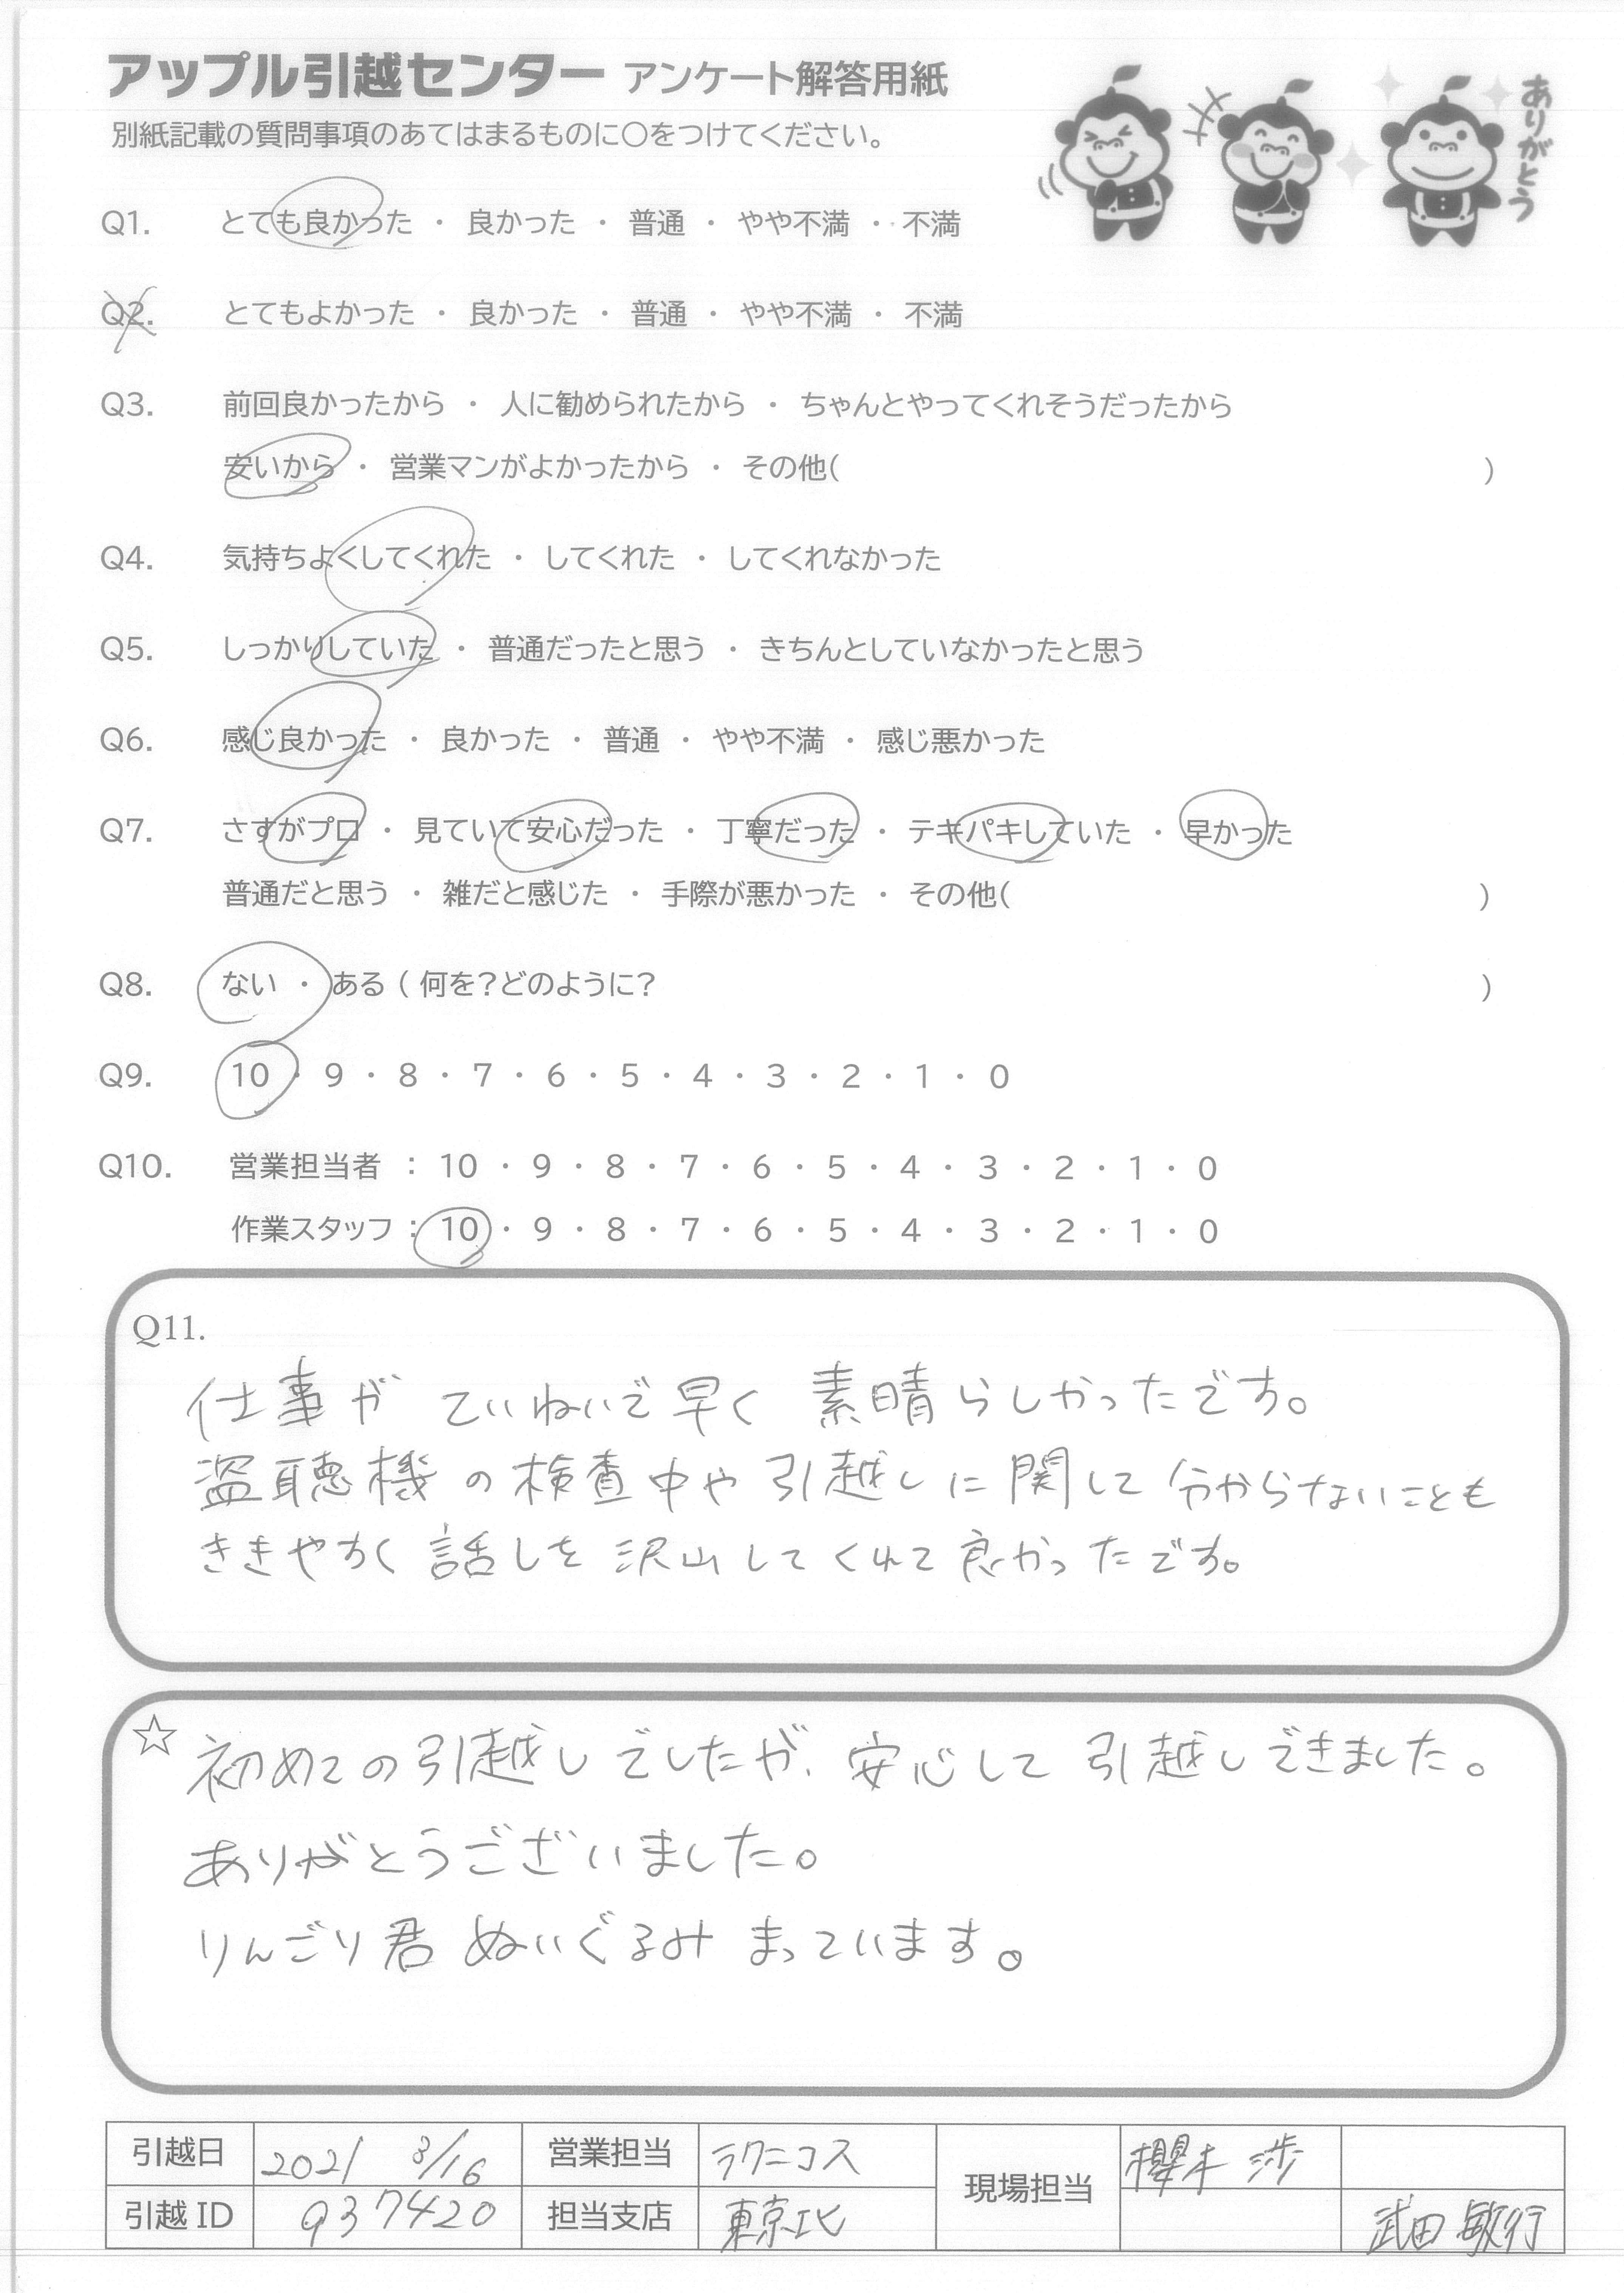 アップル引越センター アンケート解答用紙
別紙記載の質問事項のあてはまるものに○をつけてください。
ありがとう
Q1. とても良かった ・ 良かった ・ 普通 ・ やや不満 ・ 不満
Q2. とてもよかった ・ 良かった ・ 普通 ・ やや不満 ・ 不満
Q3. 前回良かったから ・ 人に勧められたから ・ ちゃんとやってくれそうだったから
安いから ・ 営業マンがよかったから ・ その他( )
Q4. 気持ちよくしてくれた ・ してくれた ・ してくれなかった
Q5. しっかりしていた ・ 普通だったと思う ・ きちんとしていなかったと思う
Q6. 感じ良かった ・ 良かった ・ 普通 ・ やや不満 ・ 感じ悪かった
Q7. さすがプロ ・ 見ていて安心だった ・ 丁寧だった ・ テキパキしていた ・ 早かった
普通だと思う ・ 雑だと感じた ・ 手際が悪かった ・ その他( )
Q8. ない ・ ある ( 何を?どのように? )
Q9. 10 ・ 9 ・ 8 ・ 7 ・ 6 ・ 5 ・ 4 ・ 3 ・ 2 ・ 1 ・ 0
Q10. 営業担当者 : 10 ・ 9 ・ 8 ・ 7 ・ 6 ・ 5 ・ 4 ・ 3 ・ 2 ・ 1 ・ 0
作業スタッフ : 10 ・ 9 ・ 8 ・ 7 ・ 6 ・ 5 ・ 4 ・ 3 ・ 2 ・ 1 ・ 0
Q11.
仕事が ていねいで早く 素晴らしかったです。
盗聴機の検査中や引越しに関して分からないことも
ききやすく話しを沢山してくれて良かったです。
☆ 初めての引越しでしたが、安心して引越しできました。
ありがとうございました。
りんごり君 ぬいぐるみ まっています。
引越日 2021 3/16 営業担当 ラクニコス 現場担当 櫻木 渉
引越ID 937420 担当支店 東京北 武田 敏行